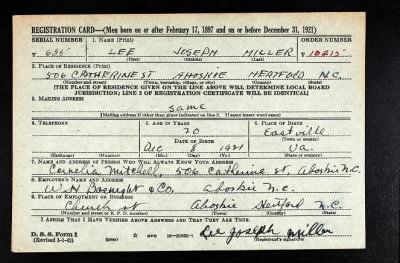 REGISTRATION CARD—(Men born on or after February 17, 1897 and on or before December 31, 1921)
SERIAL NUMBER 1. NAME (Print) ORDER NUMBER
T 635 LEE JOSEPH MILLER T 10212
(First) (Middle) (Last)
2. PLACE OF RESIDENCE (Print)
506 CATHERINE ST AHOSKIE HERTFORD N.C.
(Number and street) (Town, township, village, or city) (County) (State)
[THE PLACE OF RESIDENCE GIVEN ON THE LINE ABOVE WILL DETERMINE LOCAL BOARD
JURISDICTION; LINE 2 OF REGISTRATION CERTIFICATE WILL BE IDENTICAL]
3. MAILING ADDRESS
same
[Mailing address if other than place indicated on line 2. If same insert word same]
4. TELEPHONE 5. AGE IN YEARS 6. PLACE OF BIRTH
20 Eastville
DATE OF BIRTH (Town or county)
Dec 8 1921 Va.
(Exchange) (Number) (Mo.) (Day) (Yr.) (State or country)
7. NAME AND ADDRESS OF PERSON WHO WILL ALWAYS KNOW YOUR ADDRESS
Cornelia Mitchell, 506 Catherine St. Ahoskie N.C.
8. EMPLOYER'S NAME AND ADDRESS
W H Basnight & Co. Ahoskie N.C.
9. PLACE OF EMPLOYMENT OR BUSINESS
Church St Ahoskie Hertford N.C.
(Number and street or R. F. D. number) (Town) (County) (State)
I AFFIRM THAT I HAVE VERIFIED ABOVE ANSWERS AND THAT THEY ARE TRUE.
D. S. S. Form 1 GPO 16—21630-1 Lee Joseph Miller
(Revised 1-1-42) (Registrant's signature)